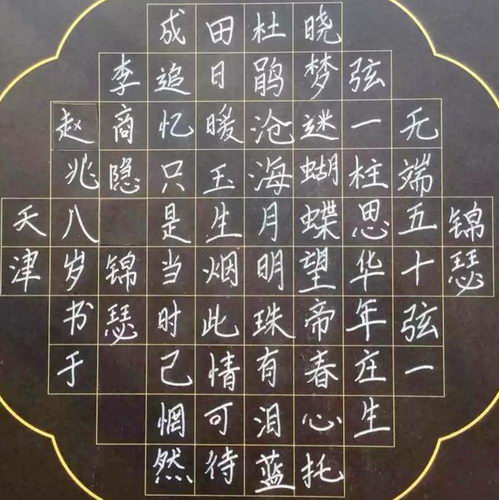 锦瑟
无端五十弦一
弦一柱思华年庄生
晓梦迷蝴蝶望帝春心托
杜鹃沧海月明珠有泪蓝
田日暖玉生烟此情可待
成追忆只是当时己惘然
李商隐 锦瑟
赵兆八岁书于
天津